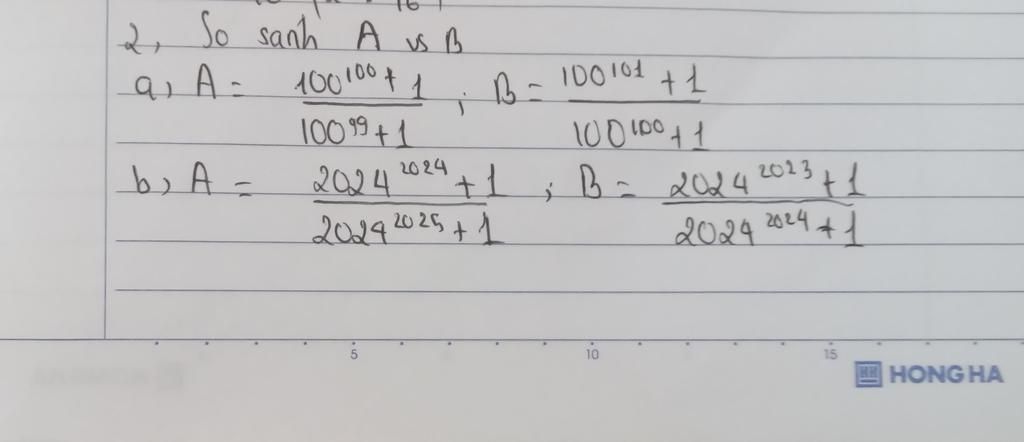 2, So sanh A vs B
a, A = (100^100 + 1)/(100^99 + 1) ; B = (100^101 + 1)/(100^100 + 1)
b, A = (2024^2024 + 1)/(2024^2025 + 1) ; B = (2024^2023 + 1)/(2024^2024 + 1)
5 10 15
HH HONG HA